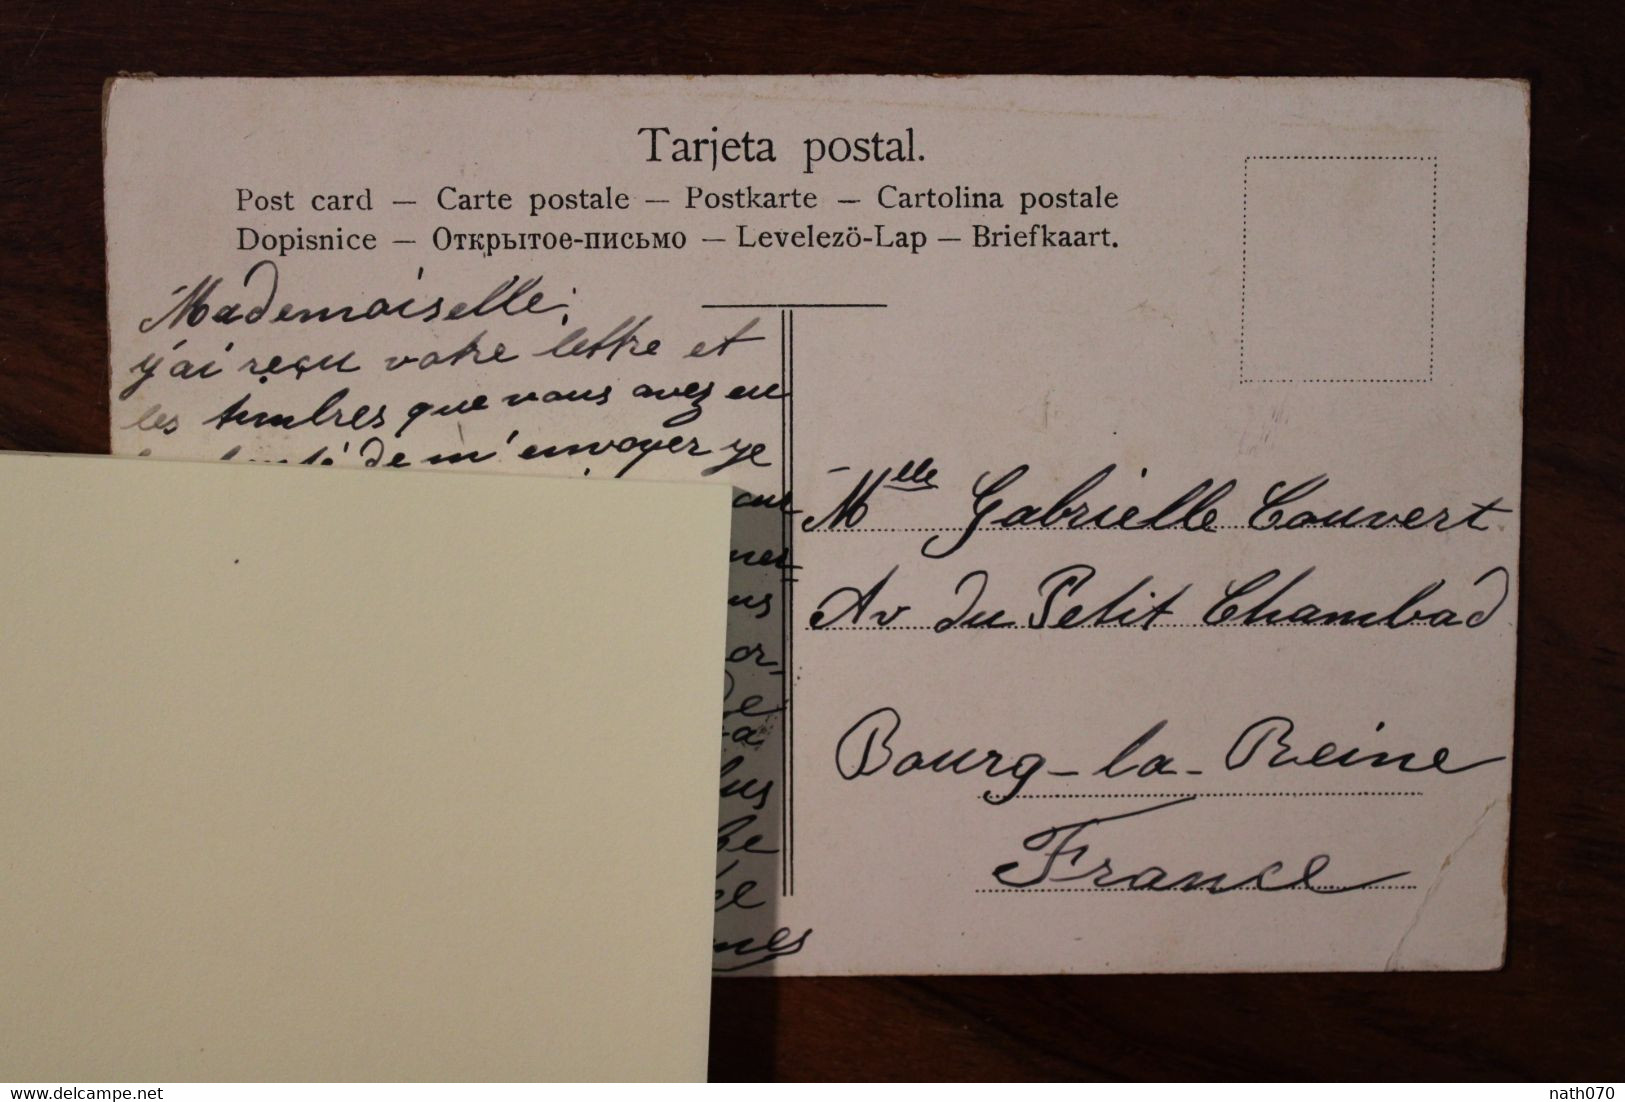 Tarjeta postal.
Post card — Carte postale — Postkarte — Cartolina postale
Dopisnice — Открытое-письмо — Levelezö-Lap — Briefkaart.
Mademoiselle;
j'ai reçu votre lettre et
les timbres que vous avez eu
de m'envoyer je
Mlle Gabrielle Couvert
Av du Petit Chambad
Bourg-la-Reine
France
delcampe.net
nath070